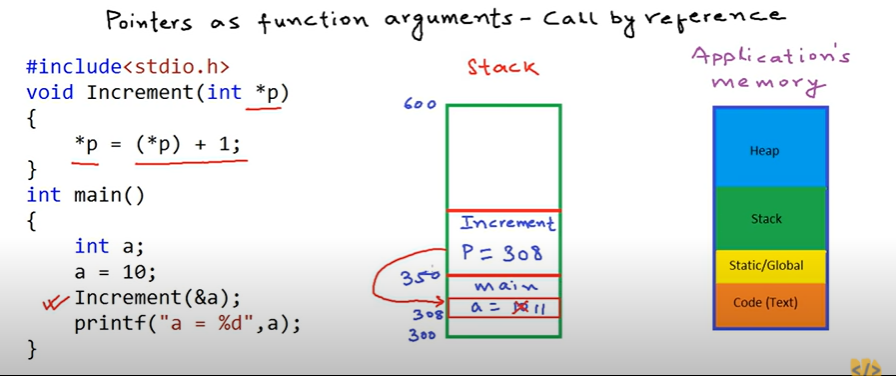 Pointers as function arguments - Call by reference
#include<stdio.h>
void Increment(int *p)
{
*p = (*p) + 1;
}
int main()
{
int a;
a = 10;
Increment(&a);
printf("a = %d",a);
}
Stack
600
Increment
P = 308
350
main
a = 10 11
308
300
Application's
memory
Heap
Stack
Static/Global
Code (Text)
</>